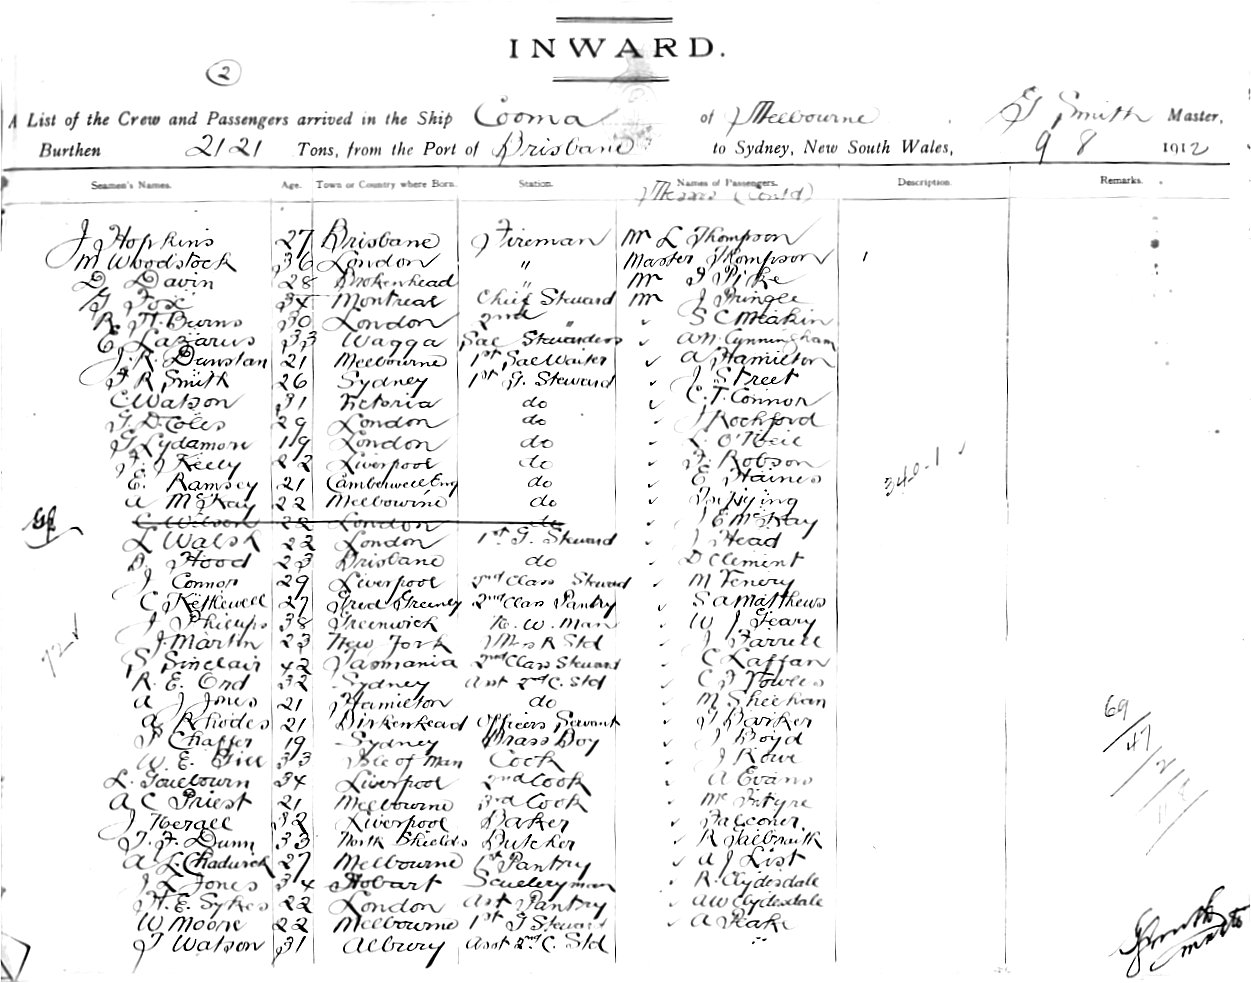 INWARD.
2
A List of the Crew and Passengers arrived in the Ship Cooma of Melbourne G Smith Master,
Burthen 2121 Tons, from the Port of Brisbane to Sydney, New South Wales, 9 8 1912
Seamen's Names. Age. Town or Country where Born. Station. Names of Passengers. Description. Remarks.
(Contd)
J Hopkins 27 Brisbane Fireman Mr L Thompson
M Woodstock 36 London " Master Thompson 1
D Davin 28 Brokenhead " Mr F Pike
G Fox 34 Montreal Chief Steward Mr J Pringle
R H Burns 30 London 2nd " ✓ S C Meakin
E Lazarus 33 Wagga Sal Stewardess ✓ A W Cunningham
J. R. Dunstan 21 Melbourne 1st Sal Waiter ✓ A Hamilton
F R Smith 26 Sydney 1st G. Steward ✓ J Street
C Watson 31 Victoria do ✓ C. T. Connor
G. D. Coles 29 London do ✓ J Rochford
G Lydamore 19 London do ✓ L. O'Neil
F. J Kelly 22 Liverpool do ✓ F Robson
E. Ramsey 21 Camberwell Eng do ✓ E Haines 340-1 ✓
A McKay 22 Melbourne do ✓
C Wilson 22 London do ✓ J E McKay
L Walsh 22 London 1st G. Steward ✓ J Head
D. Hood 23 Brisbane do ✓ D Clement
J Connor 29 Liverpool 2nd Class Steward ✓ M Fenery
C Kethewell 27 2nd Class Pantry ✓ S A Matthews
J Phillips 38 Greenwick ✓ W J Geary
J. Martin 23 New York Mess R Std ✓ J Farrell
72 ✓
S Sinclair 42 Tasmania 2nd Class Steward ✓ C Laffan
R. E. Ord 32 Sydney Asst 2nd C. Std ✓ C F Vowles
A J Jones 21 Hamilton do ✓ M Sheehan
A Rhodes 21 Birkenhead Officers Servant ✓ G Barker 69
P Chaffer 19 Sydney Brass Boy ✓ J Boyd 47
W. E. Gill 33 Isle of Man Cook ✓ J Rowe 2
L. Goulbourn 34 Liverpool 2nd Cook ✓ A Evans
A C Priest 21 Melbourne 3rd Cook ✓ McIntyre
J 32 Liverpool Baker ✓ Falconer
T. F. Dunn 33 North Shields Butcher ✓ R Galbraith
A L. Chadwick 27 Melbourne 1st Pantry ✓ A J List
J L Jones 34 Hobart Sculleryman ✓ R. Clydesdale
H. E. Sykes 22 London Asst Pantry ✓ A W Clydesdale
W Moore 22 Melbourne 1st G Steward ✓ A Peake
J Watson 31 Albury Asst 2nd C. Std
G Smith
Master